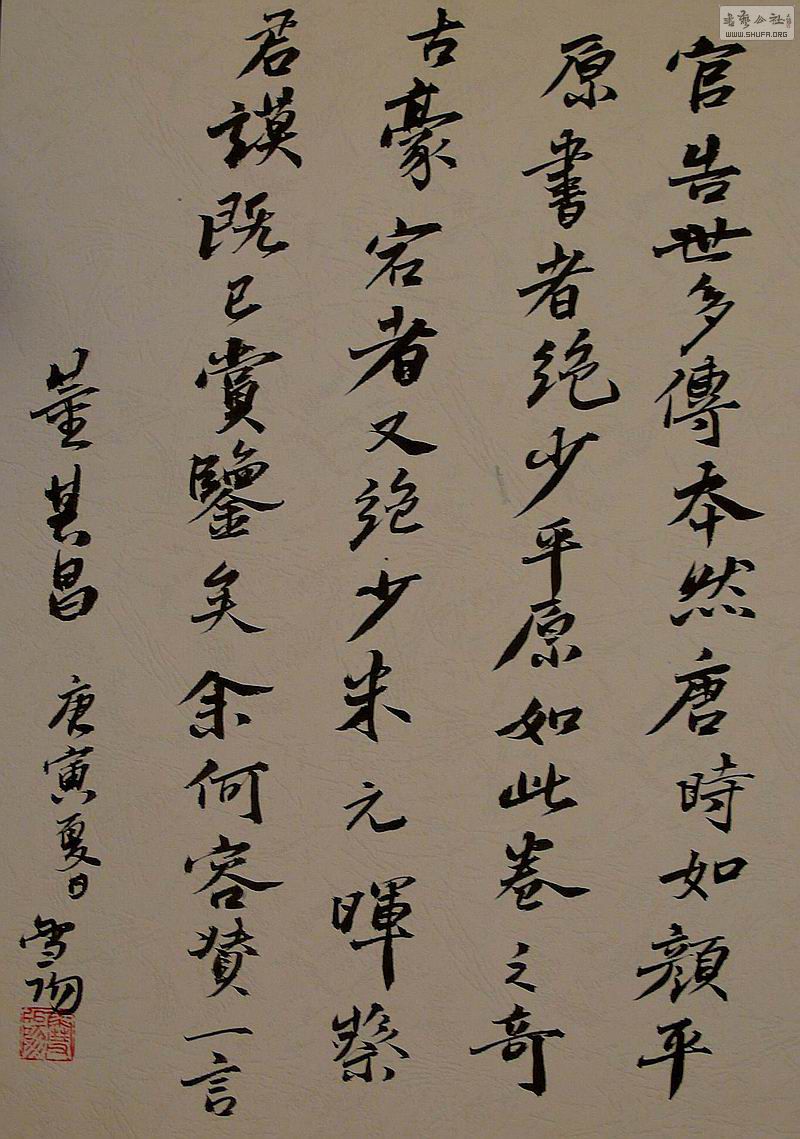 官告世多傳本然唐時如顏平
原書者絕少平原如此卷之奇
古豪宕者又絕少米元暉蔡
君謨既已賞鑒矣余何容贊一言
董其昌 庚寅夏日
书艺公社
WWW.SHUFA.ORG